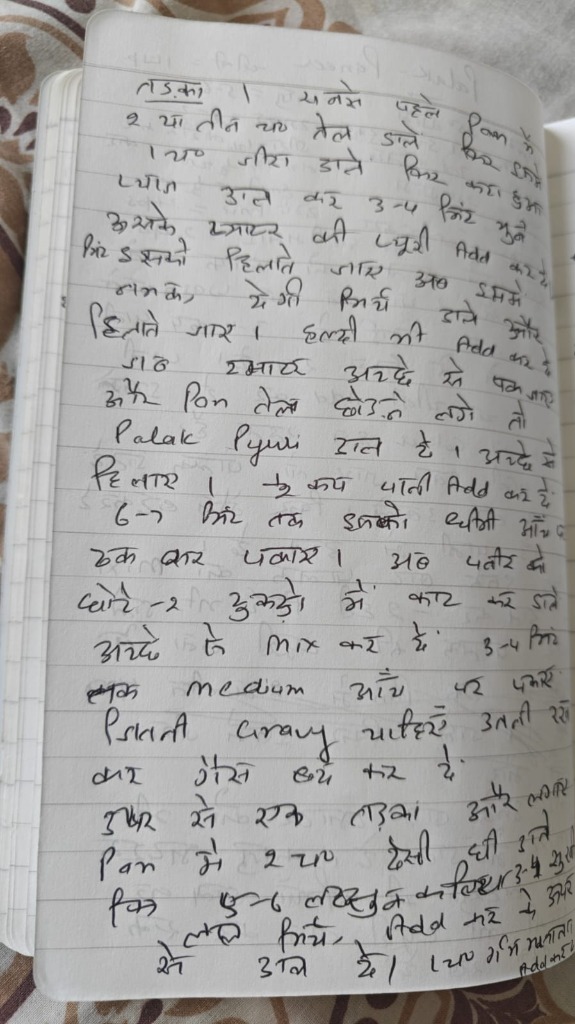 तड़का । सबसे पहले Pan में
२ या तीन च० तेल डाले फिर इसमें
1 च० जीरा डाले फिर कटा हुआ
प्याज डाल कर 3-4 मिंट भुने
उसके टमाटर की प्यूरी Add कर दे
मिंट इसको हिलाते जाए अब इसमें
नमक, देगी मिर्च डाले और
हिलाते जाए । हल्दी भी Add कर दे
जब टमाटर अच्छे से पक जाए
और Pan तेल छोड़ने लगे तो
Palak Pyuri डाल दे । अच्छे से
हिलाए । ½ कप पानी Add कर दें
6-7 मिंट तक इसको धीमी आँच
ढक कर पकाए । अब पनीर को
छोटे -२ टुकड़ो में काट कर डाले
अच्छे से mix कर दें 3-4 मिंट
तक medium आँच पर पकाए
जितनी Gravy चाहिए उतनी रख
कर गैस बंद कर दें
उपर से एक तड़का और लगाए
Pan मे २ च० देसी घी डाले
फिर 5-6 लहसुन कलिया 3-4 सुखी
लाल मिर्च, Add कर के उपर
से डाल दे । 1 च० गर्म मसाला
Add कर दे